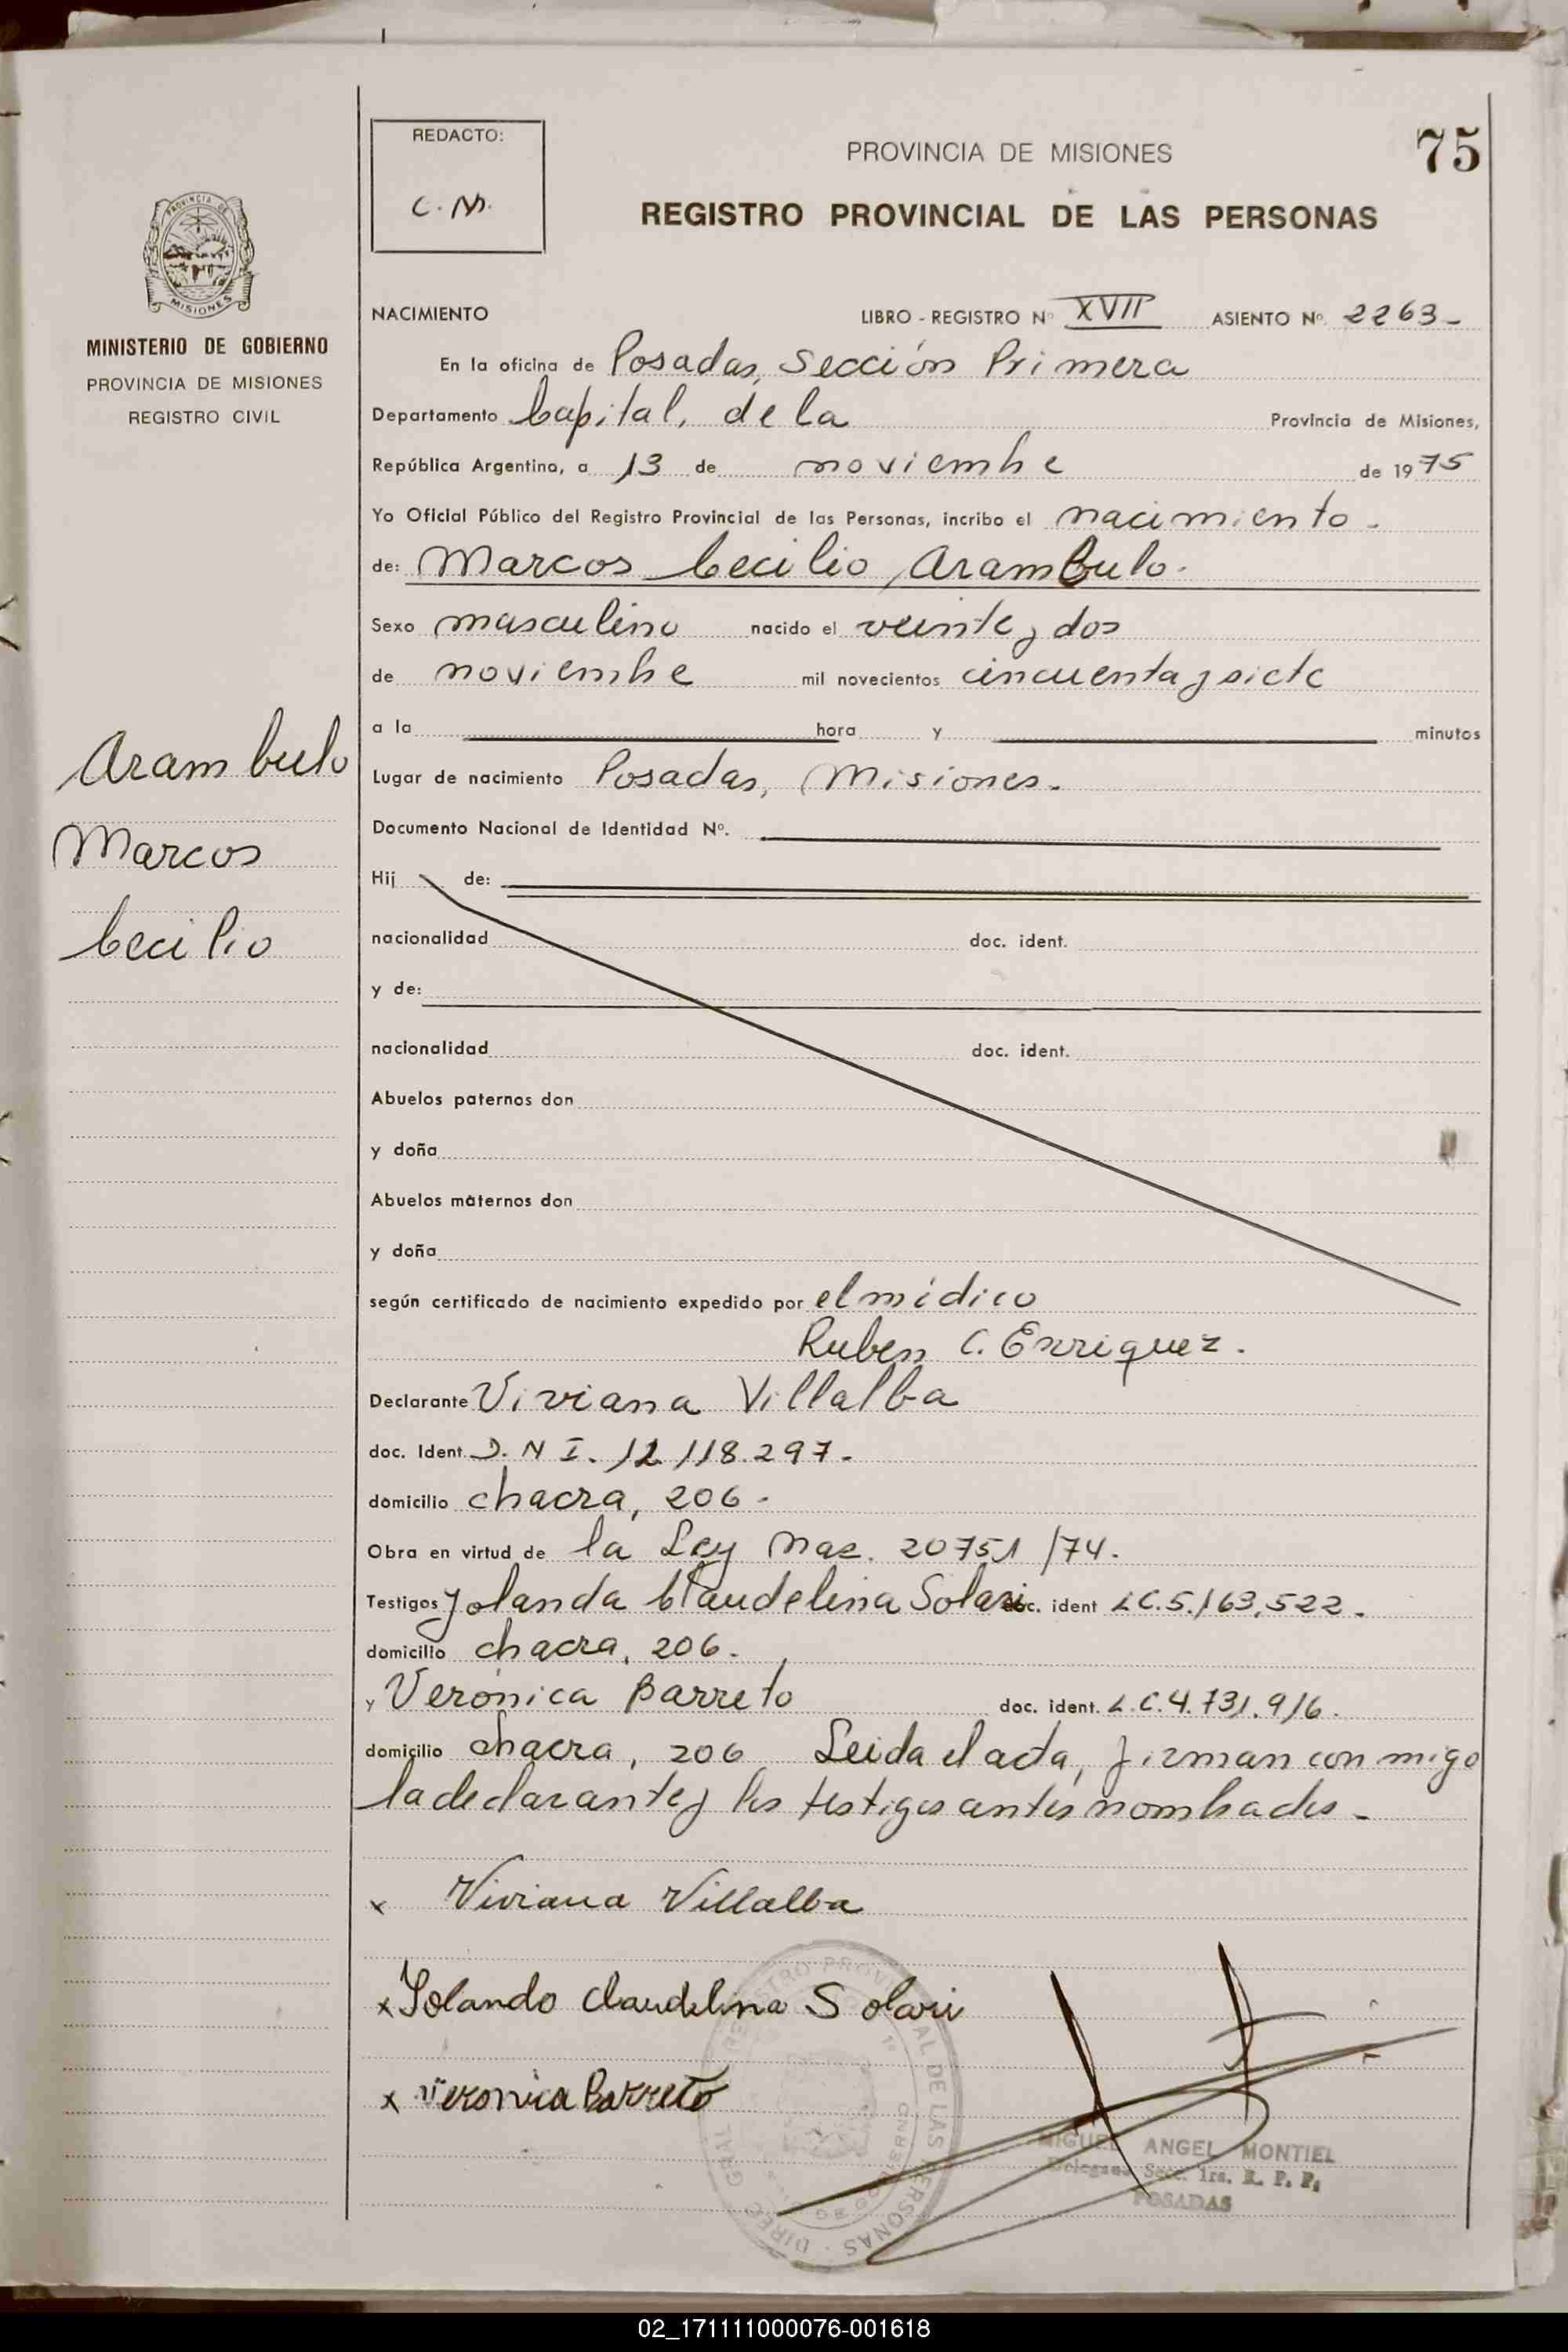 REDACTO:
C. M.
PROVINCIA DE MISIONES
75
REGISTRO PROVINCIAL DE LAS PERSONAS
PROVINCIA DE
MISIONES
MINISTERIO DE GOBIERNO
PROVINCIA DE MISIONES
REGISTRO CIVIL
NACIMIENTO LIBRO - REGISTRO Nº XVII ASIENTO Nº 2263-
En la oficina de Posadas, Sección Primera
Departamento Capital, de la Provincia de Misiones,
República Argentina, a 13 de noviembre de 1975
Yo Oficial Público del Registro Provincial de las Personas, incribo el nacimiento.
de: Marcos Cecilio Arambulo.
Sexo masculino nacido el veinte y dos
de noviembre mil novecientos cincuenta y siete
a la hora y minutos
Arambulo
Lugar de nacimiento Posadas, Misiones.
Documento Nacional de Identidad Nº.
Marcos
Hij de:
Cecilio
nacionalidad doc. ident.
y de:
nacionalidad doc. ident.
Abuelos paternos don
y doña
Abuelos maternos don
y doña
según certificado de nacimiento expedido por el médico
Ruben C. Enriquez.
Declarante Viviana Villalba
doc. Ident. D. N I. 12.118.297.
domicilio chacra, 206.
Obra en virtud de la Ley Nac. 20751/74.
Testigos Yolanda Claudelina Solari doc. ident L.C. 5.163.522.
domicilio chacra, 206.
y Verónica Barreto doc. ident. L.C. 4.731.916.
domicilio chacra, 206 Leida el acta, firman con migo
la declarante y los testigos antes nombrados.
x Viviana Villalba
x Yolanda Claudelina Solari
x Veronica Barreto
MIGUEL ANGEL MONTIEL
Delegado Secc. 1ra. R. P. P.
POSADAS
02_171111000076-001618